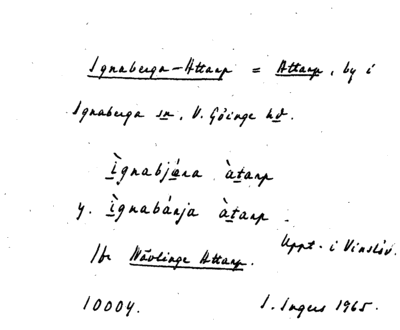 Ignaberga-Attarp = Attarp, by i
Ignaberga sn, V. Göinge hd.
ìgnabjǽra àtarp
y. ìgnabánja àtarp.
Uppt. i Vinslöv.
Jfr Nävlinge Attarp.
10004. I. Ingers 1965.